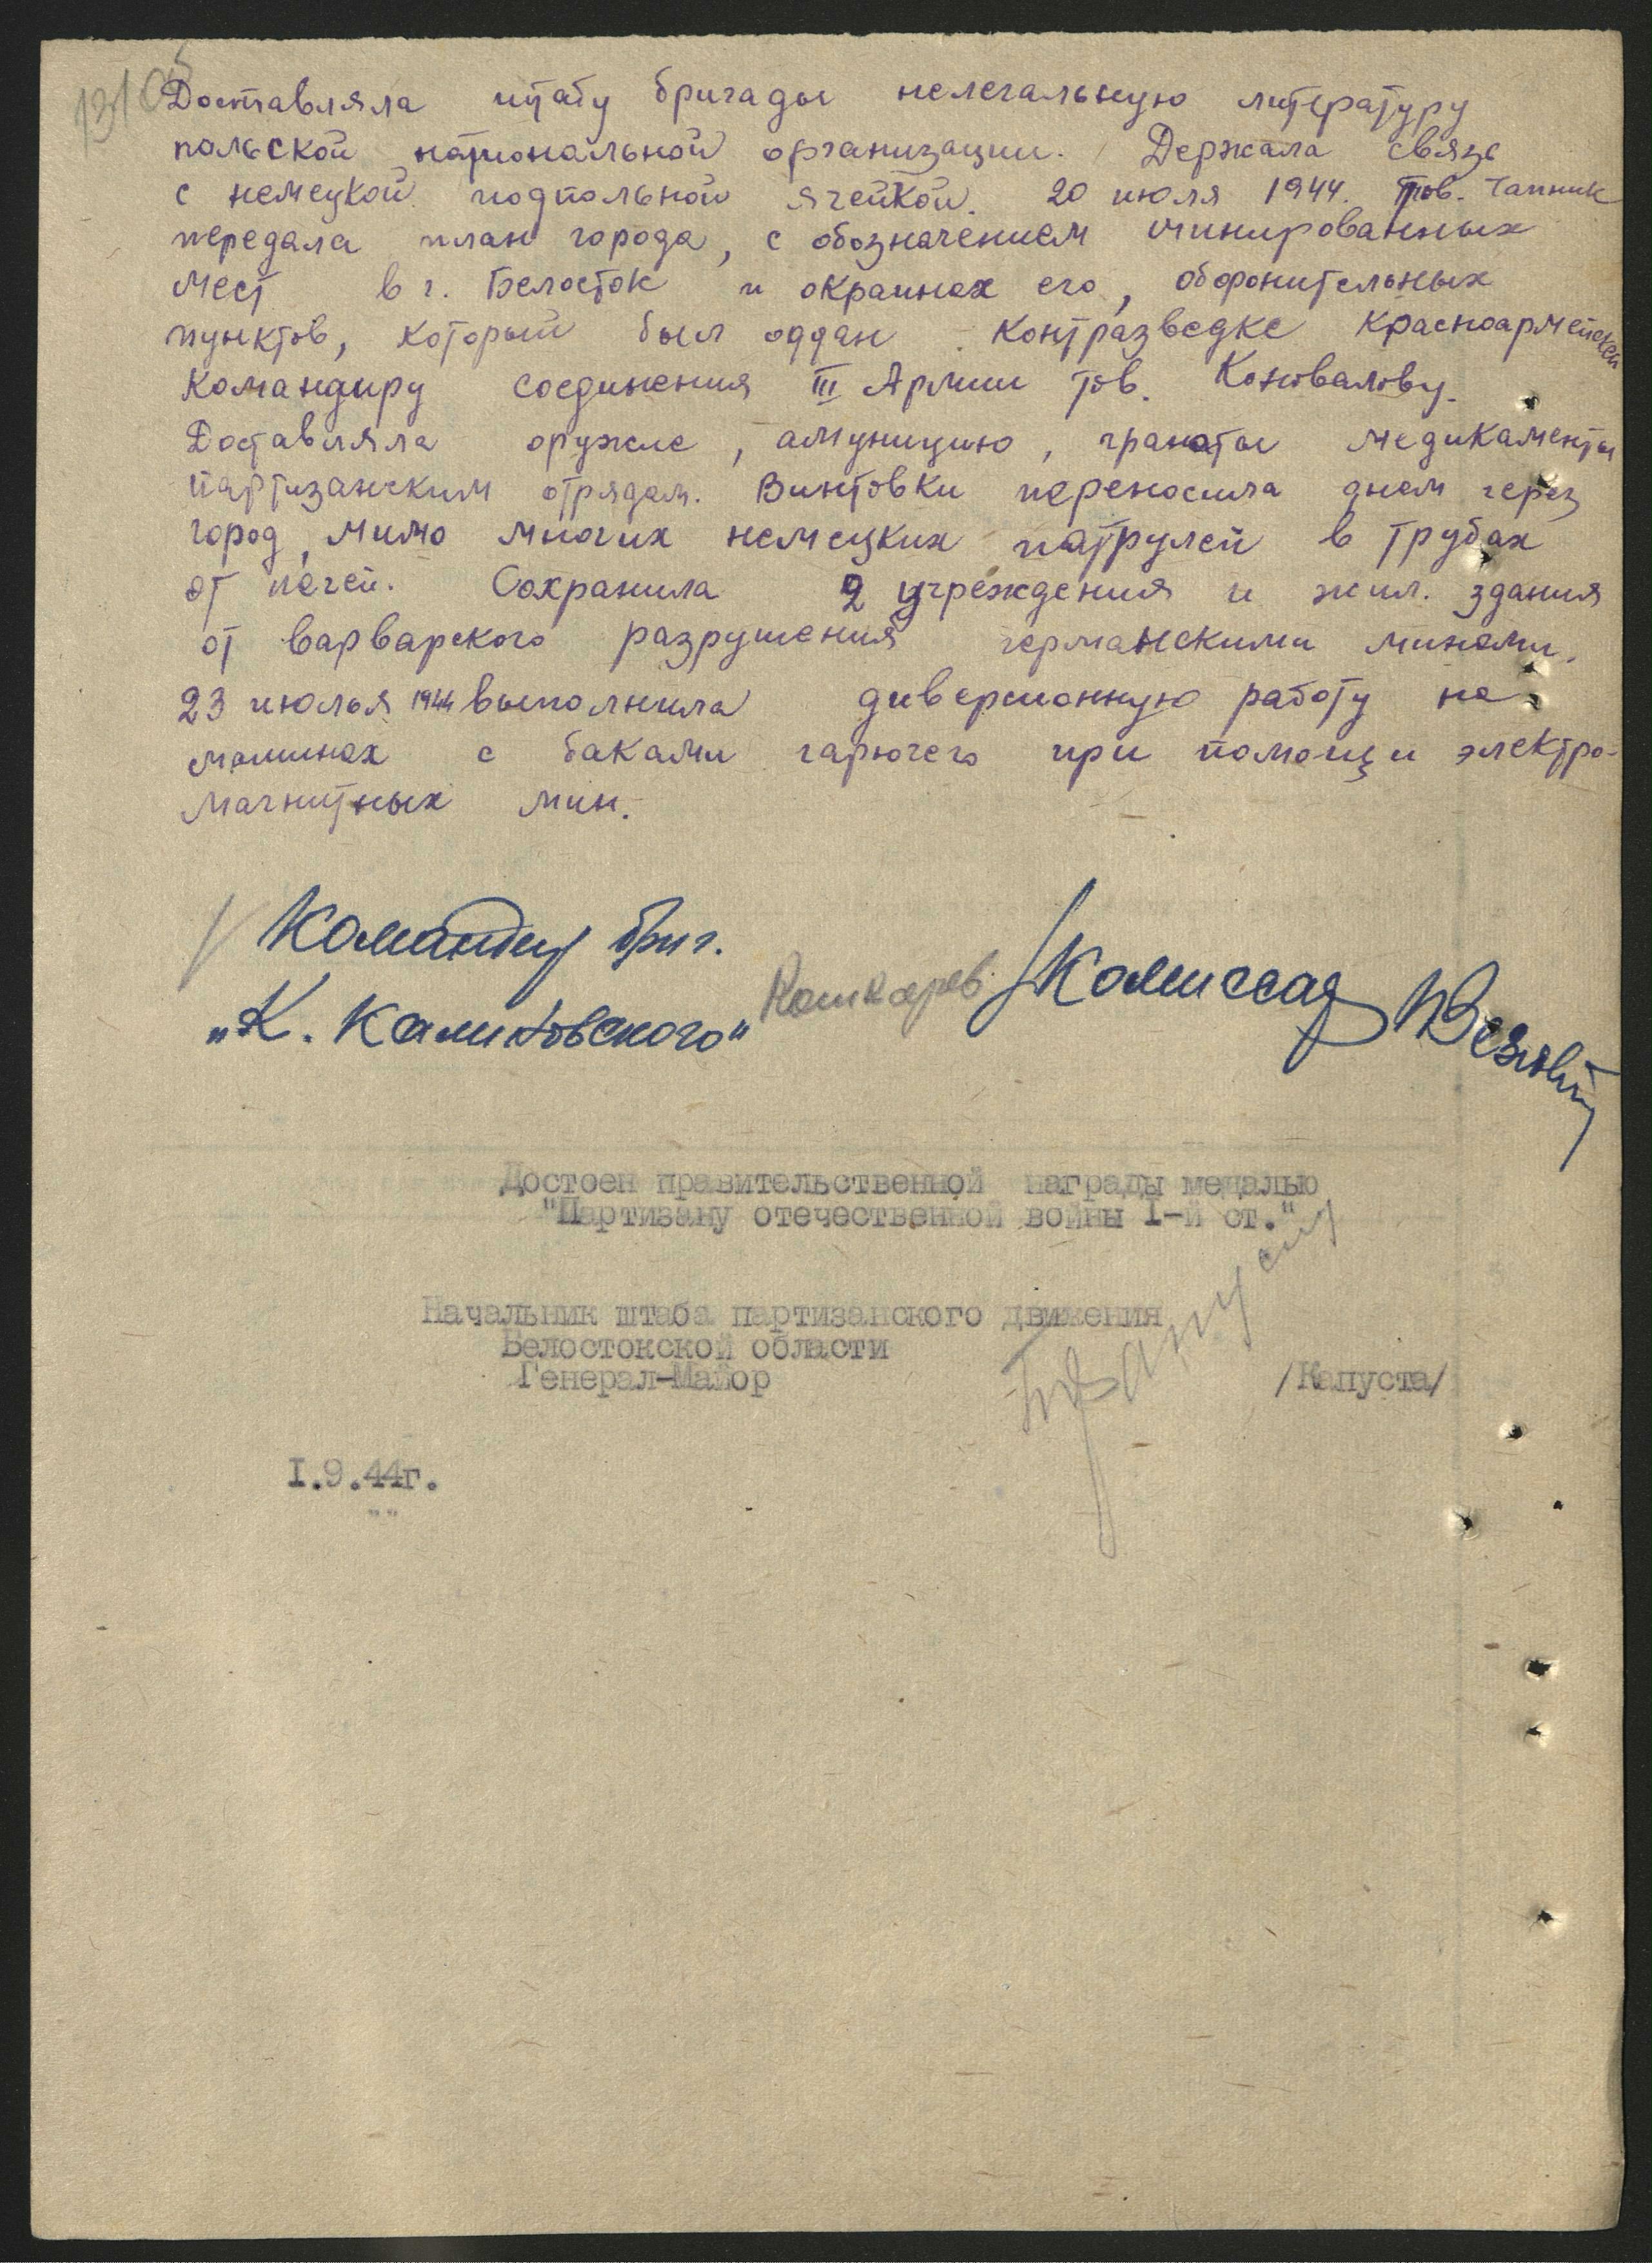 Доставляла штабу бригады нелегальную литературу
польской национальной организации. Держала связь
с немецкой подпольной ячейкой. 20 июля 1944. тов. Чапник
передала план города, с обозначением минированных
мест в г. Белосток и окраинах его, оборонительных
пунктов, который был оддан контразведке Красноармейской
Командиру соединения III Армии тов. Коновалову.
Доставляла оружие, амуницию, гранаты медикаменты
партизанским отрядам. Винтовки переносила днем через
город, мимо многих немецких патрулей в трубах
от печей. Сохранила 2 учреждения и жил. здания
от варварского разрушения германскими минами.
23 июлья 1944 выполнила диверсионную работу на
машинах с баками гарючего при помощи электро-
магнитных мин.
Командир бриг.
"К. Калиновского" Кашкарев Комиссар
Достоен правительственной награды медалью
"Партизану отечественной войны I-й ст."
Начальник штаба партизанского движения
Белостокской области
Генерал-Майор /Капуста/
I.9.44г.